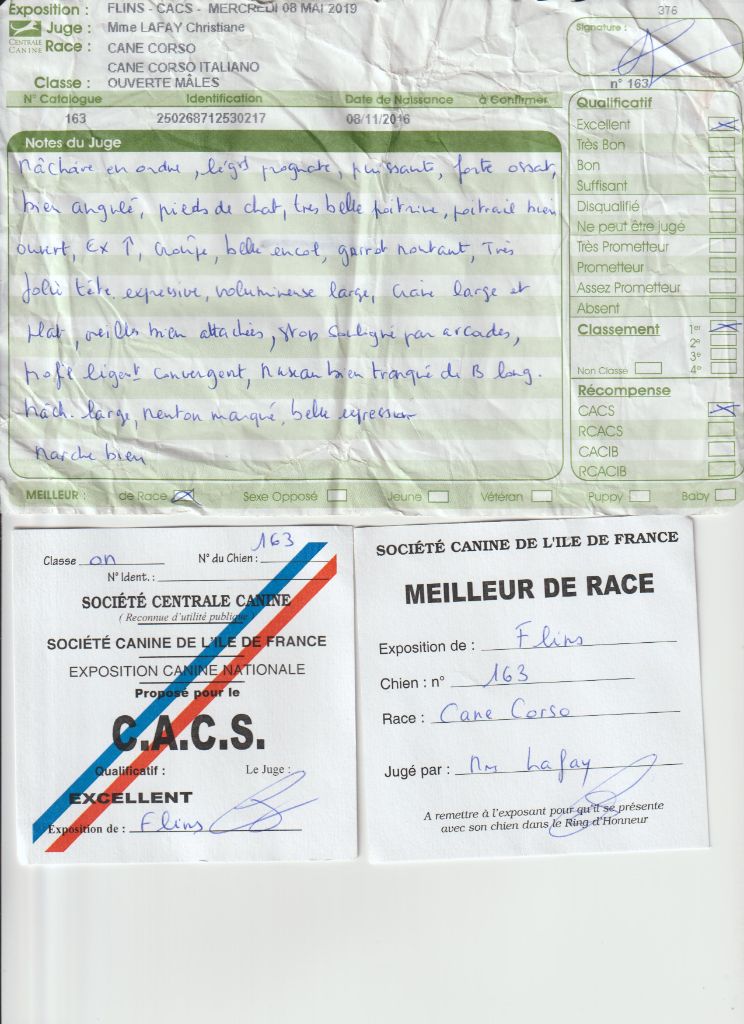 Exposition : FLINS - CACS - MERCREDI 08 MAI 2019
376
Juge : Mme LAFAY Christiane
CENTRALE CANINE
Race : CANE CORSO
CANE CORSO ITALIANO
Classe : OUVERTE MÂLES
Signature :
n° 163
N° Catalogue Identification Date de Naissance à Confirmer
163 250268712530217 08/11/2016
Notes du Juge
Mâchoire en ordre, légt prognate, puissante, forte ossat,
bien angulé, pieds de chat, tres belle poitrine, poitrail bien
ouvert, Ex ↑, croupe, belle encol, garrot montant, Très
jolie tête expressive, volumineuse large, crane large et
plat, oreilles bien attachées, stop souligné par arcades,
profil légert convergent, museau bien tronqué de B long.
Mâch. large, menton marqué, belle expression
Marche bien
Qualificatif
Excellent
Très Bon
Bon
Suffisant
Disqualifié
Ne peut être jugé
Très Prometteur
Prometteur
Assez Prometteur
Absent
Classement 1er
2e
3e
Non Classé 4e
Récompense
CACS
RCACS
CACIB
RCACIB
MEILLEUR : de Race Sexe Opposé Jeune Vétéran Puppy Baby
Classe on N° du Chien : 163
N° Ident. :
SOCIÉTÉ CENTRALE CANINE
( Reconnue d'utilité publique )
SOCIÉTÉ CANINE DE L'ILE DE FRANCE
EXPOSITION CANINE NATIONALE
Proposé pour le
C.A.C.S.
Qualificatif : Le Juge :
EXCELLENT
Exposition de : Flins
SOCIÉTÉ CANINE DE L'ILE DE FRANCE
MEILLEUR DE RACE
Exposition de : Flins
Chien : n° 163
Race : Cane Corso
Jugé par : Mm Lafay
A remettre à l'exposant pour qu'il se présente
avec son chien dans le Ring d'Honneur